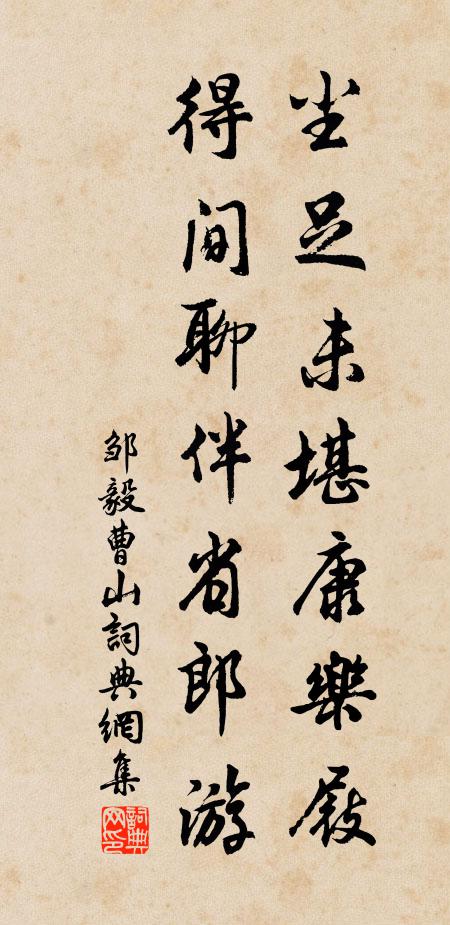 坐足未堪康樂屐
得間聊伴省郎游
鄒毅曹山詞典網集
詞典
网印